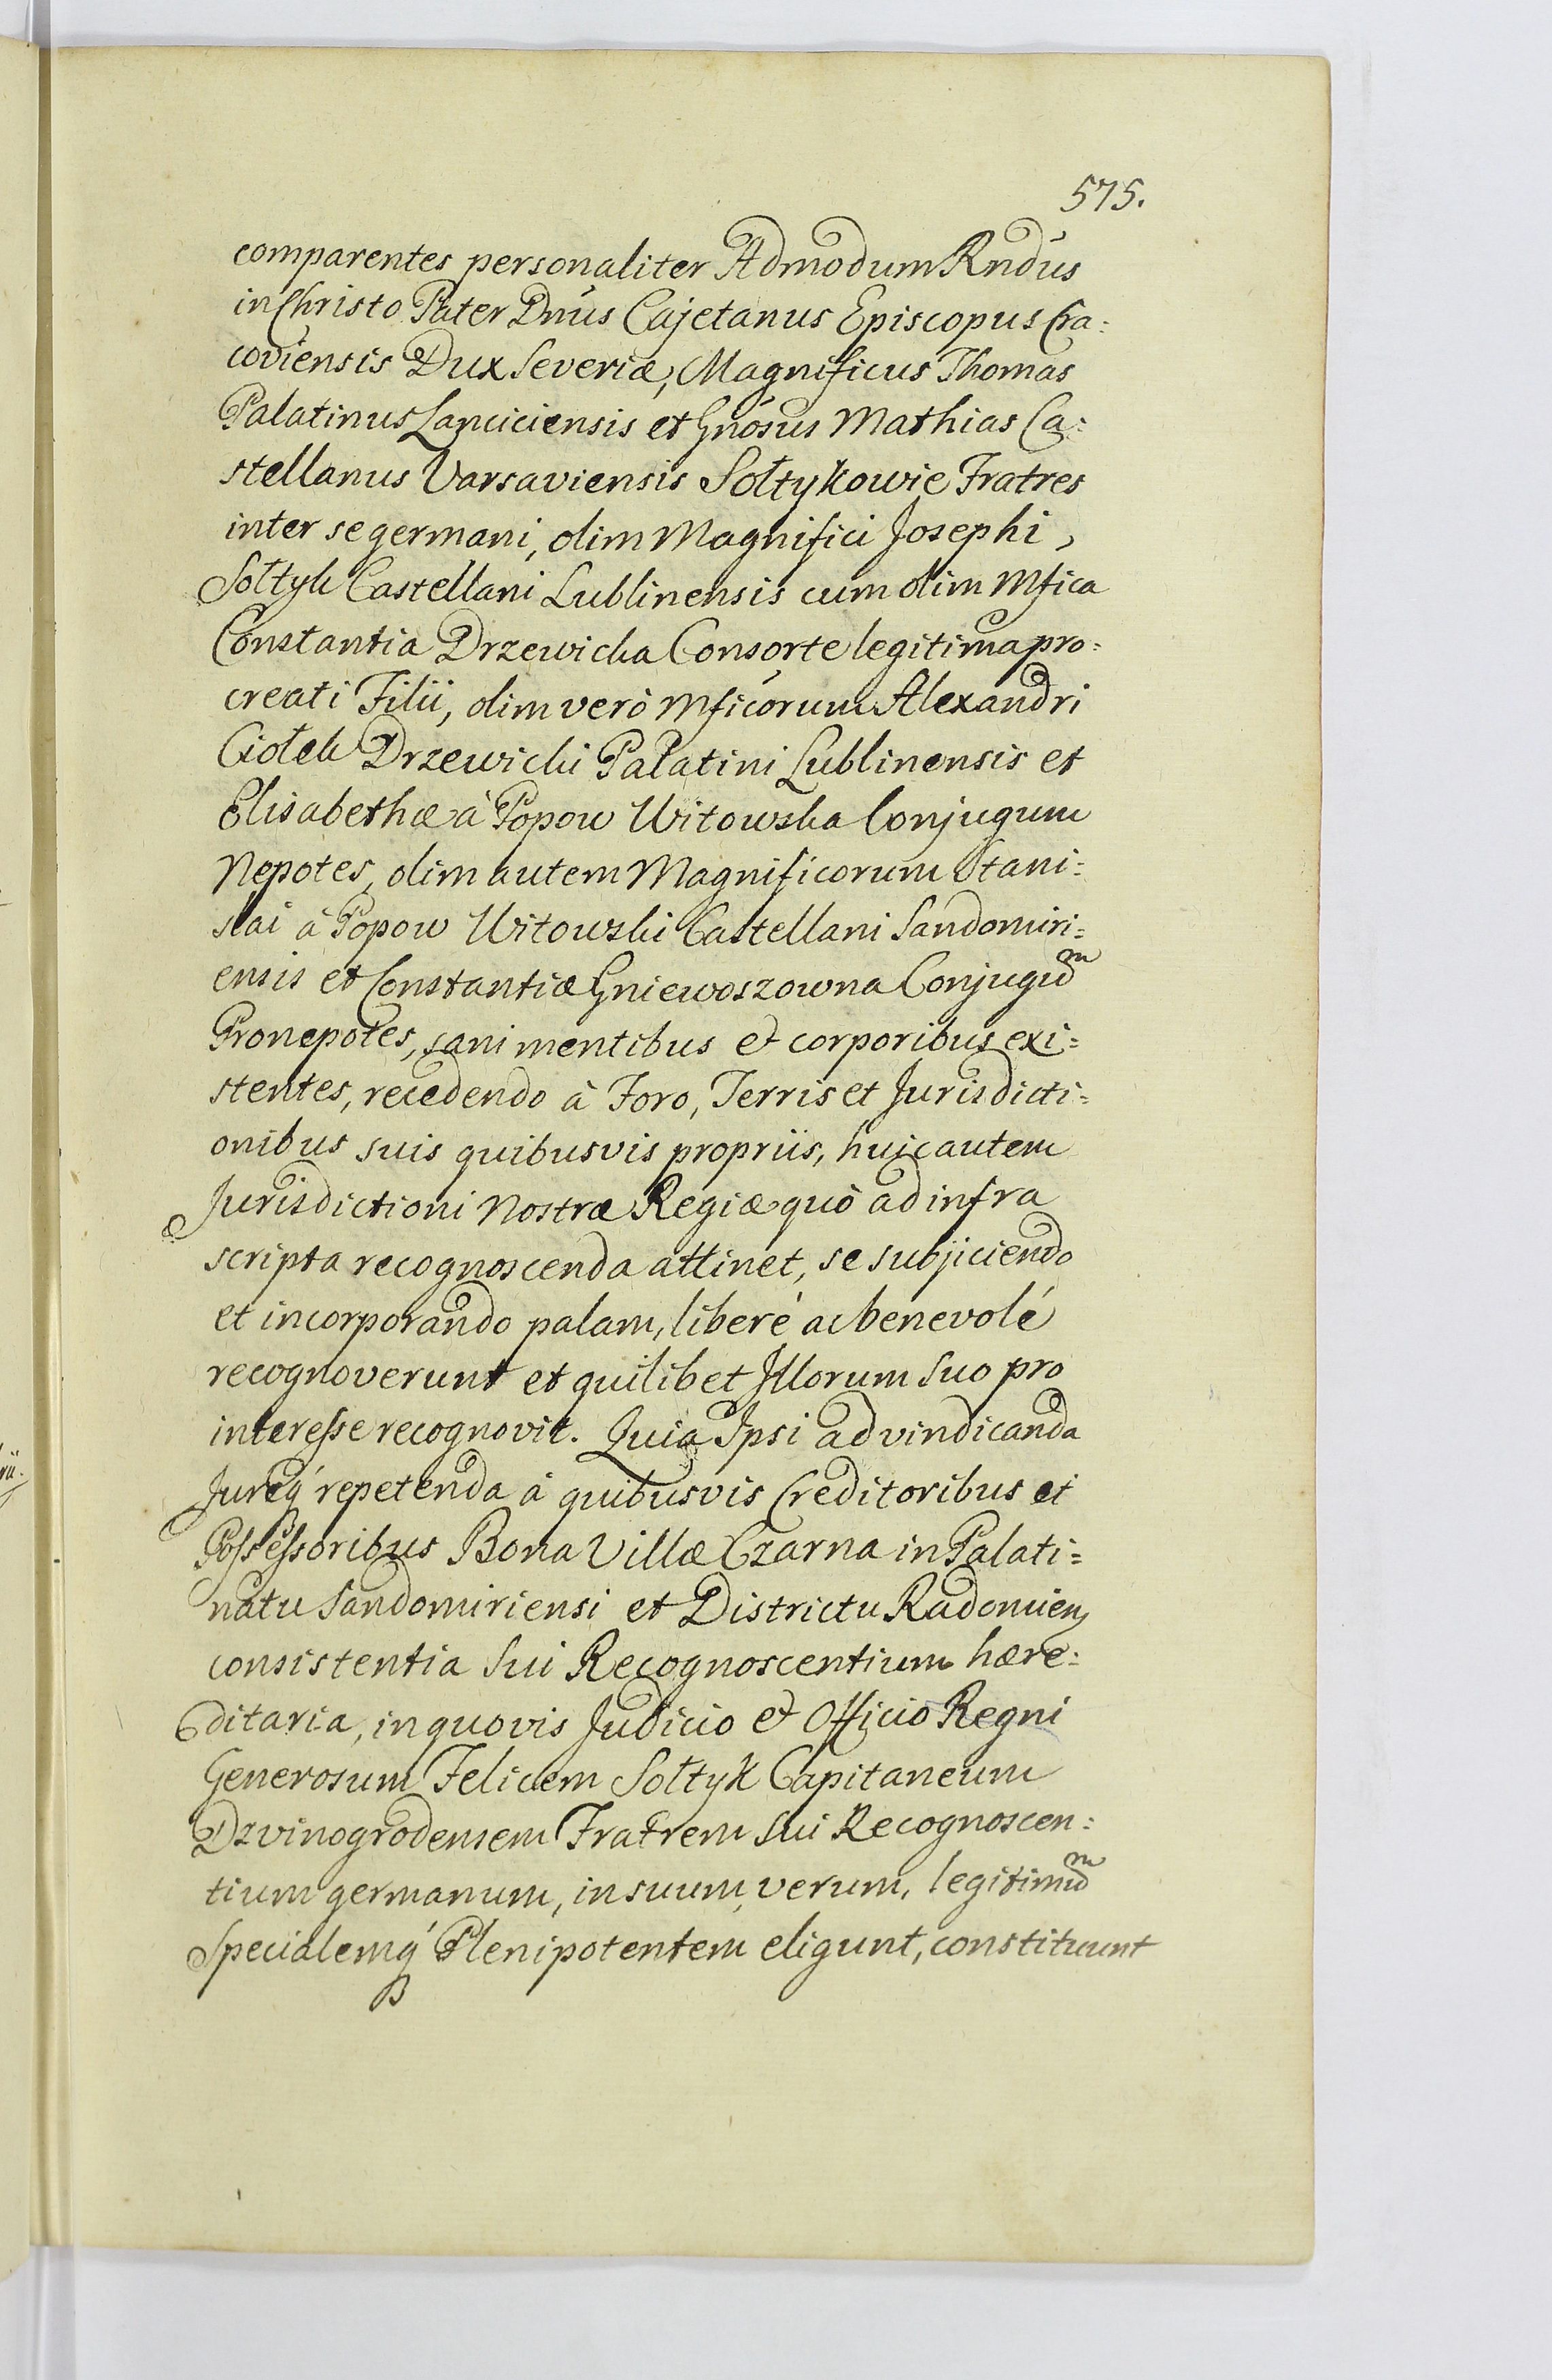 575.
comparentes personaliter Admodum Rndus
in Christo Pater Dnus Cajetanus Episcopus Cra:
coviensis Dux Severiæ, Magnificus Thomas
Palatinus Lanciciensis et Gnosus Mathias Ca:
stellanus Varsaviensis Sołtykowie Fratres
inter se germani, olim Magnifici Josephi,
Sołtyk Castellani Lublinensis cum olim Mfica
Constantia Drzewicka Consorte legitima pro:
creati Filii, olim verò Mficorum Alexandri
Ciołek Drzewicki Palatini Lublinensis et
Elisabethæ à Popow Witowska Conjugum
Nepotes, olim autem Magnificorum Stani:
slai à Popow Witowski Castellani Sandomiri=
ensis et Constantiæ Gniewoszowna Conjugum
Pronepotes, sani mentibus et corporibus exi=
stentes, recedendo à Foro, Terris et Jurisdicti=
onibus suis quibusvis propriis, huic autem
Jurisdictioni Nostræ Regiæ quò ad infra
scripta recognoscenda attinet, se subjiciendo
et incorporando palam, liberè ac benevolé
recognoverunt et quilibet Illorum suo pro
interesse recognovit. Quia Ipsi ad vindicanda
Jureq́ repetenda à quibusvis Creditoribus et
Possessoribus Bona Villæ Czarna in Palati=
natu Sandomiriensi et Districtu Radomien
consistentia Sui Recognoscentium hære:
ditaria, in quovis Judicio et Officio Regni
Generosum Felicem Sołtyk Capitaneum
Dzvinogrodensem Fratrem Sui Recognoscen:
tium germanum, in suum, verum, legitimum
Specialemq́ Plenipotentem eligunt, constituunt